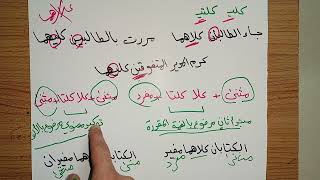 كلاهما
كلا كلتا
جاء الطالبان كلاهما مررت بالطالبين كليهما
كرم المدير المتفوقين كليهما
مثنى + كلا كلتا + مفرد مثنى + كلا كلتا + مثنى
مبتدأ ثان مرفوع بالضمة المقدرة توكيد معنوي مرفوع بالألف
الكتابان كلاهما مفيد الكتابان كلاهما مفيدان
مثنى مفرد مثنى مثنى